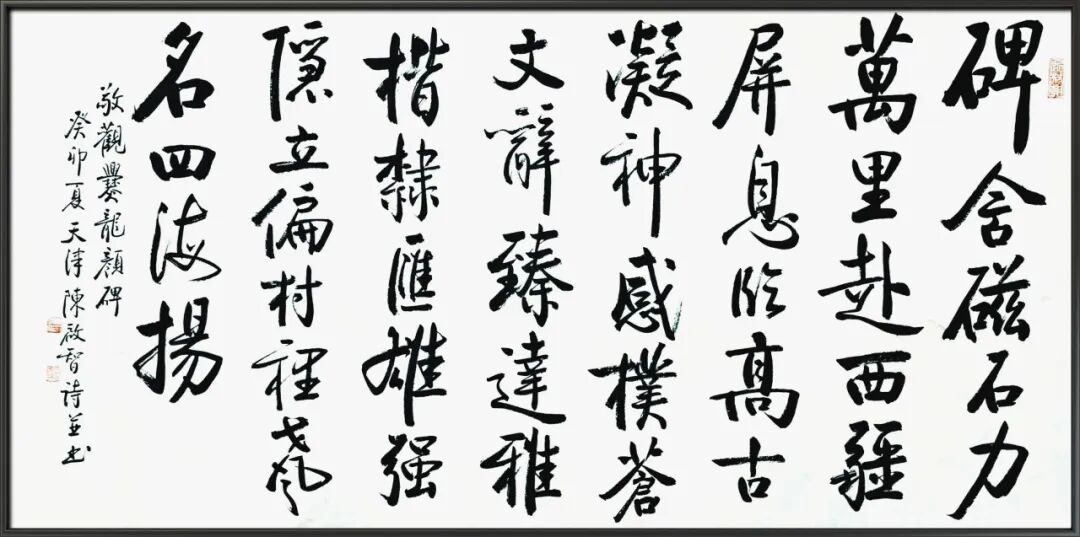 碑含磁石力
萬里赴西疆
屏息临高古
凝神感樸蒼
文辭臻達雅
楷隸匯雄强
隱立偏村裡
名四海揚
敬觀爨龍顏碑
癸卯夏天津陳啟智詩並书